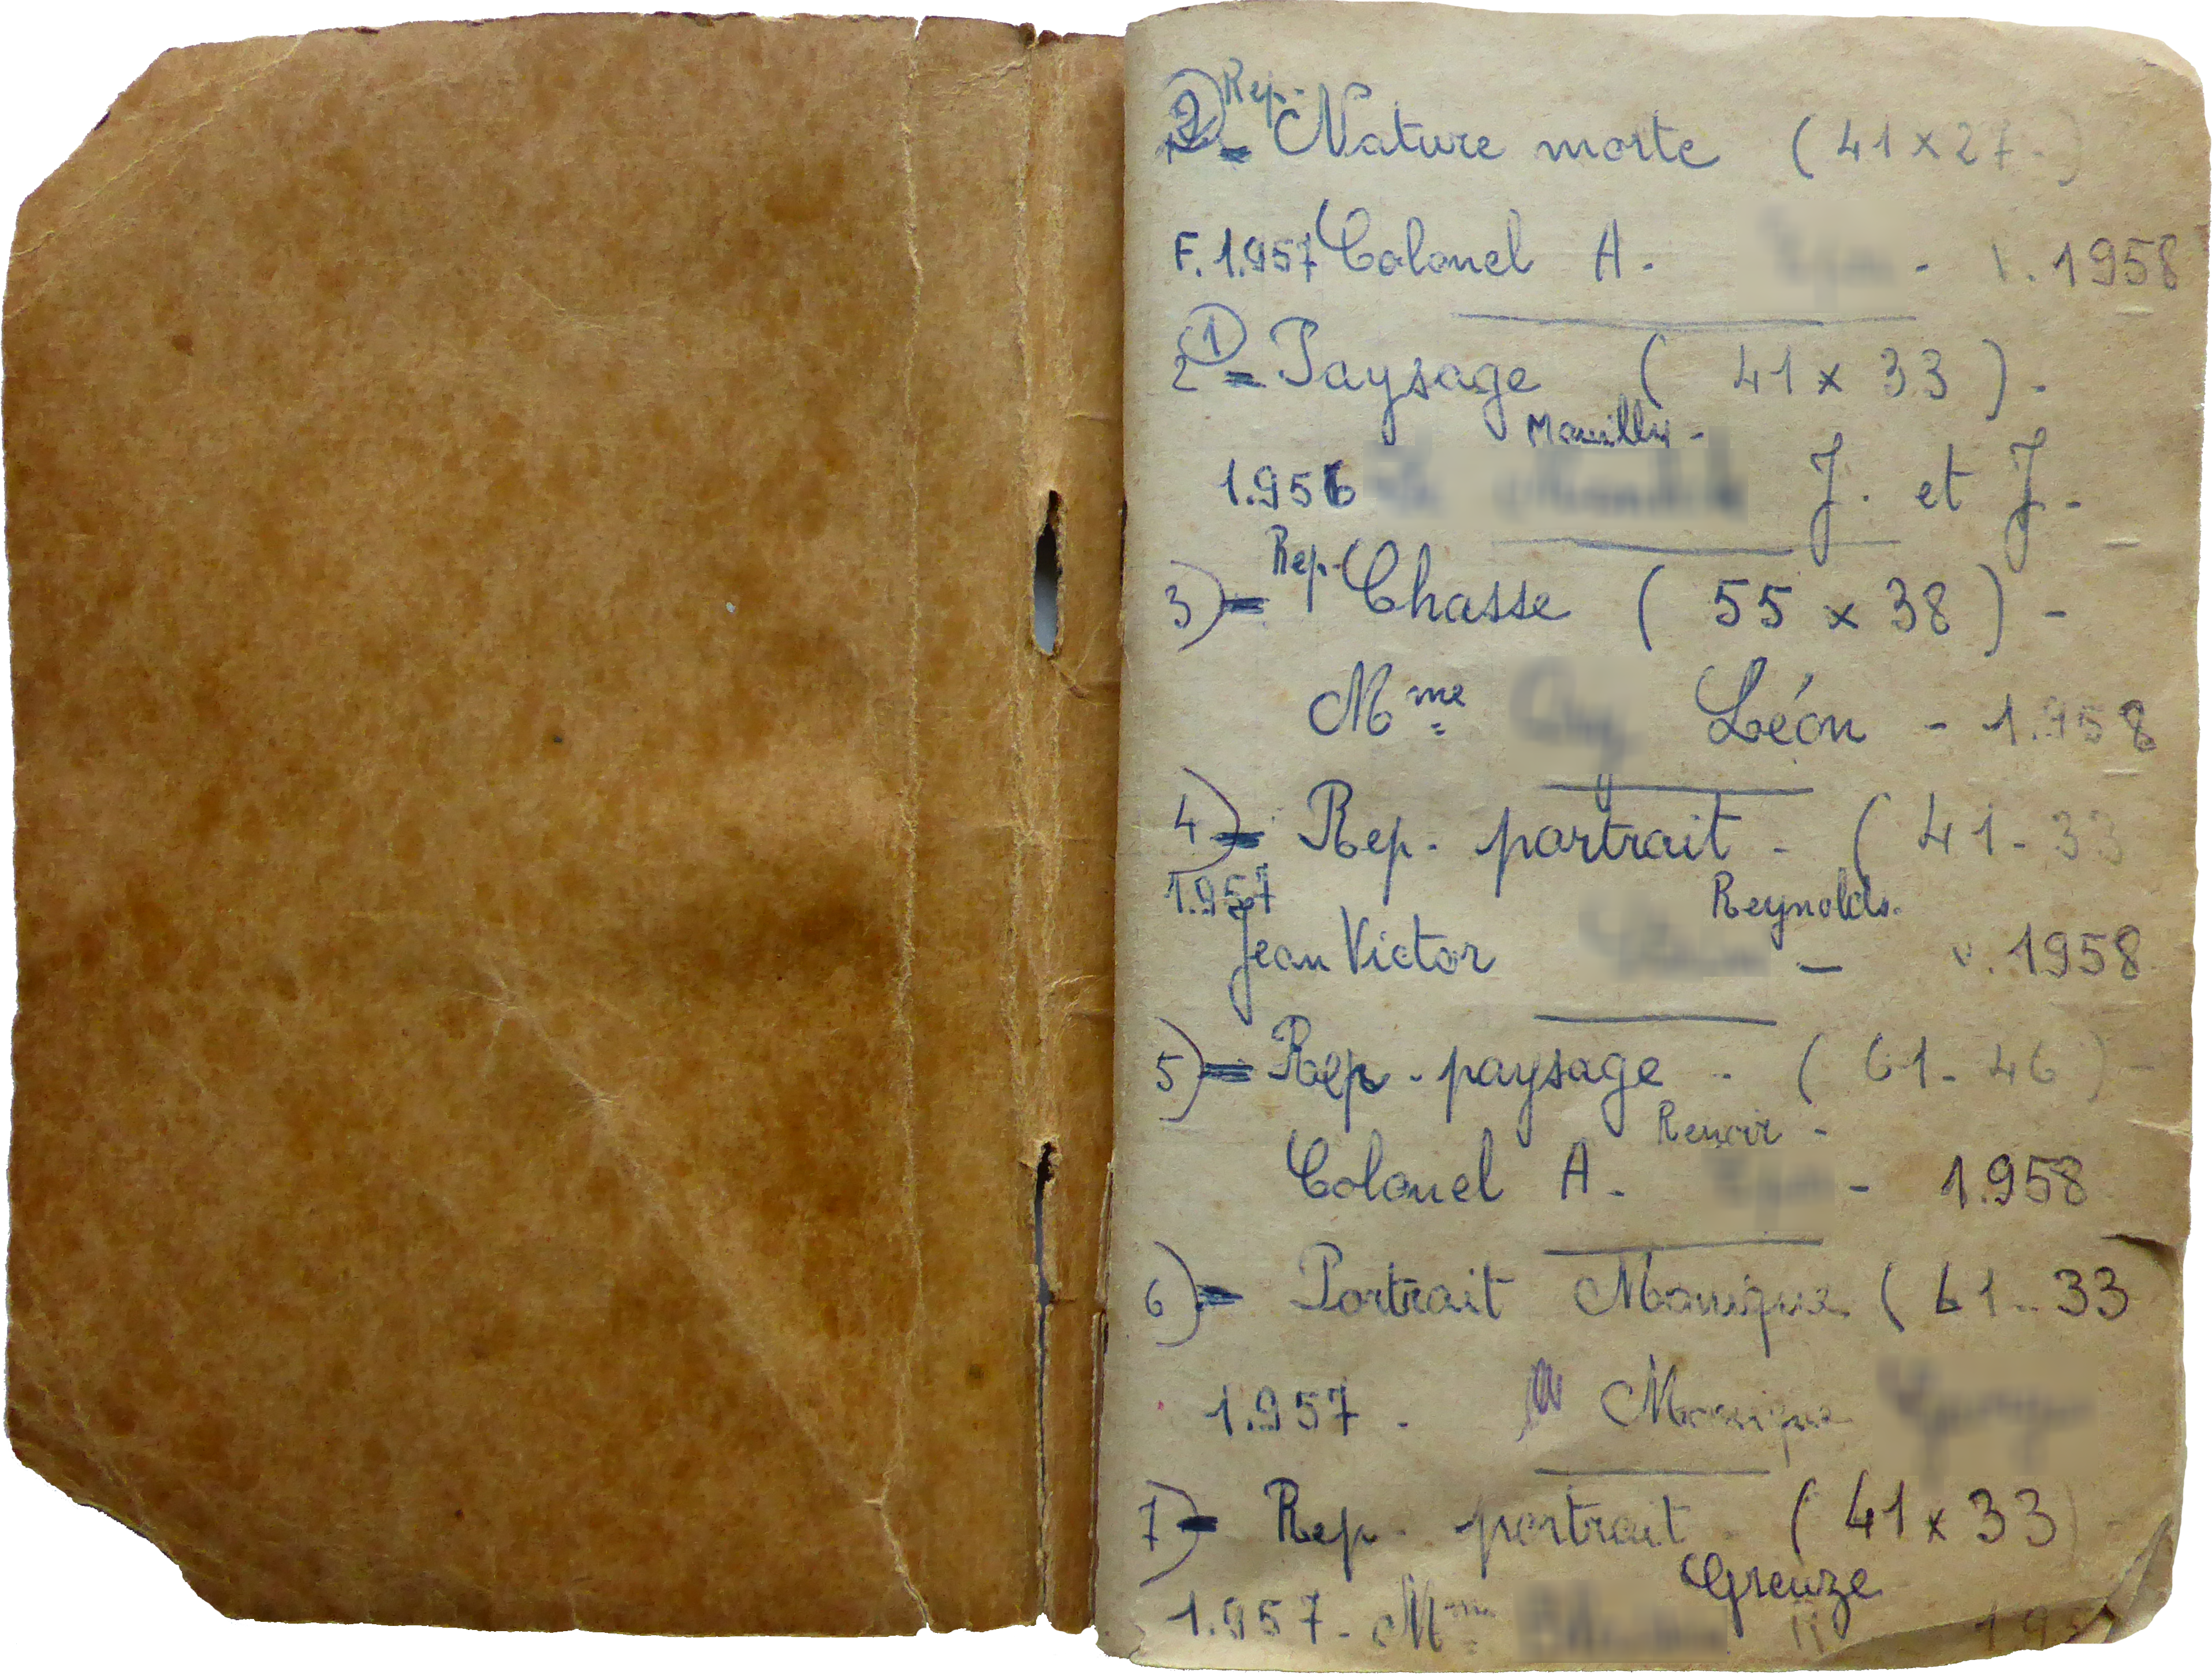 2 Rep.
= Nature morte (41 x 27.)
F. 1.957 Colonel A. - v. 1958
2 1 = Paysage (41 x 33) -
1.956 J. et J -
3) = Rep. Chasse (55 x 38) -
Mme Léon - 1.958
4) = Rep. portrait - (41 - 33
1.957 Reynolds.
Jean Victor - v. 1958
5) = Rep - paysage - (61 - 46) -
Renoir -
Colonel A. - 1.958
6) = Portrait Monique (61 - 33
1.957. Monique
7) = Rep - portrait - (41 x 33) -
Greuze
1.957 - Mme